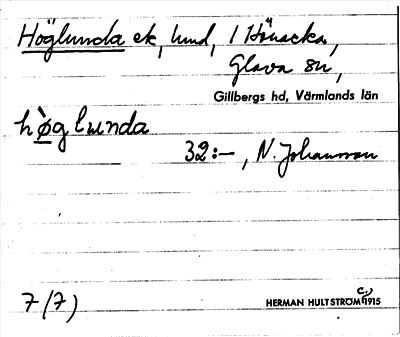 Höglunda ek, lund, 1 Hönacka,
Glava sn,
Gillbergs hd, Värmlands län
hø̀glunda
32:—, N. Johansson
7 (7)
HERMAN HULTSTRÖM 1915